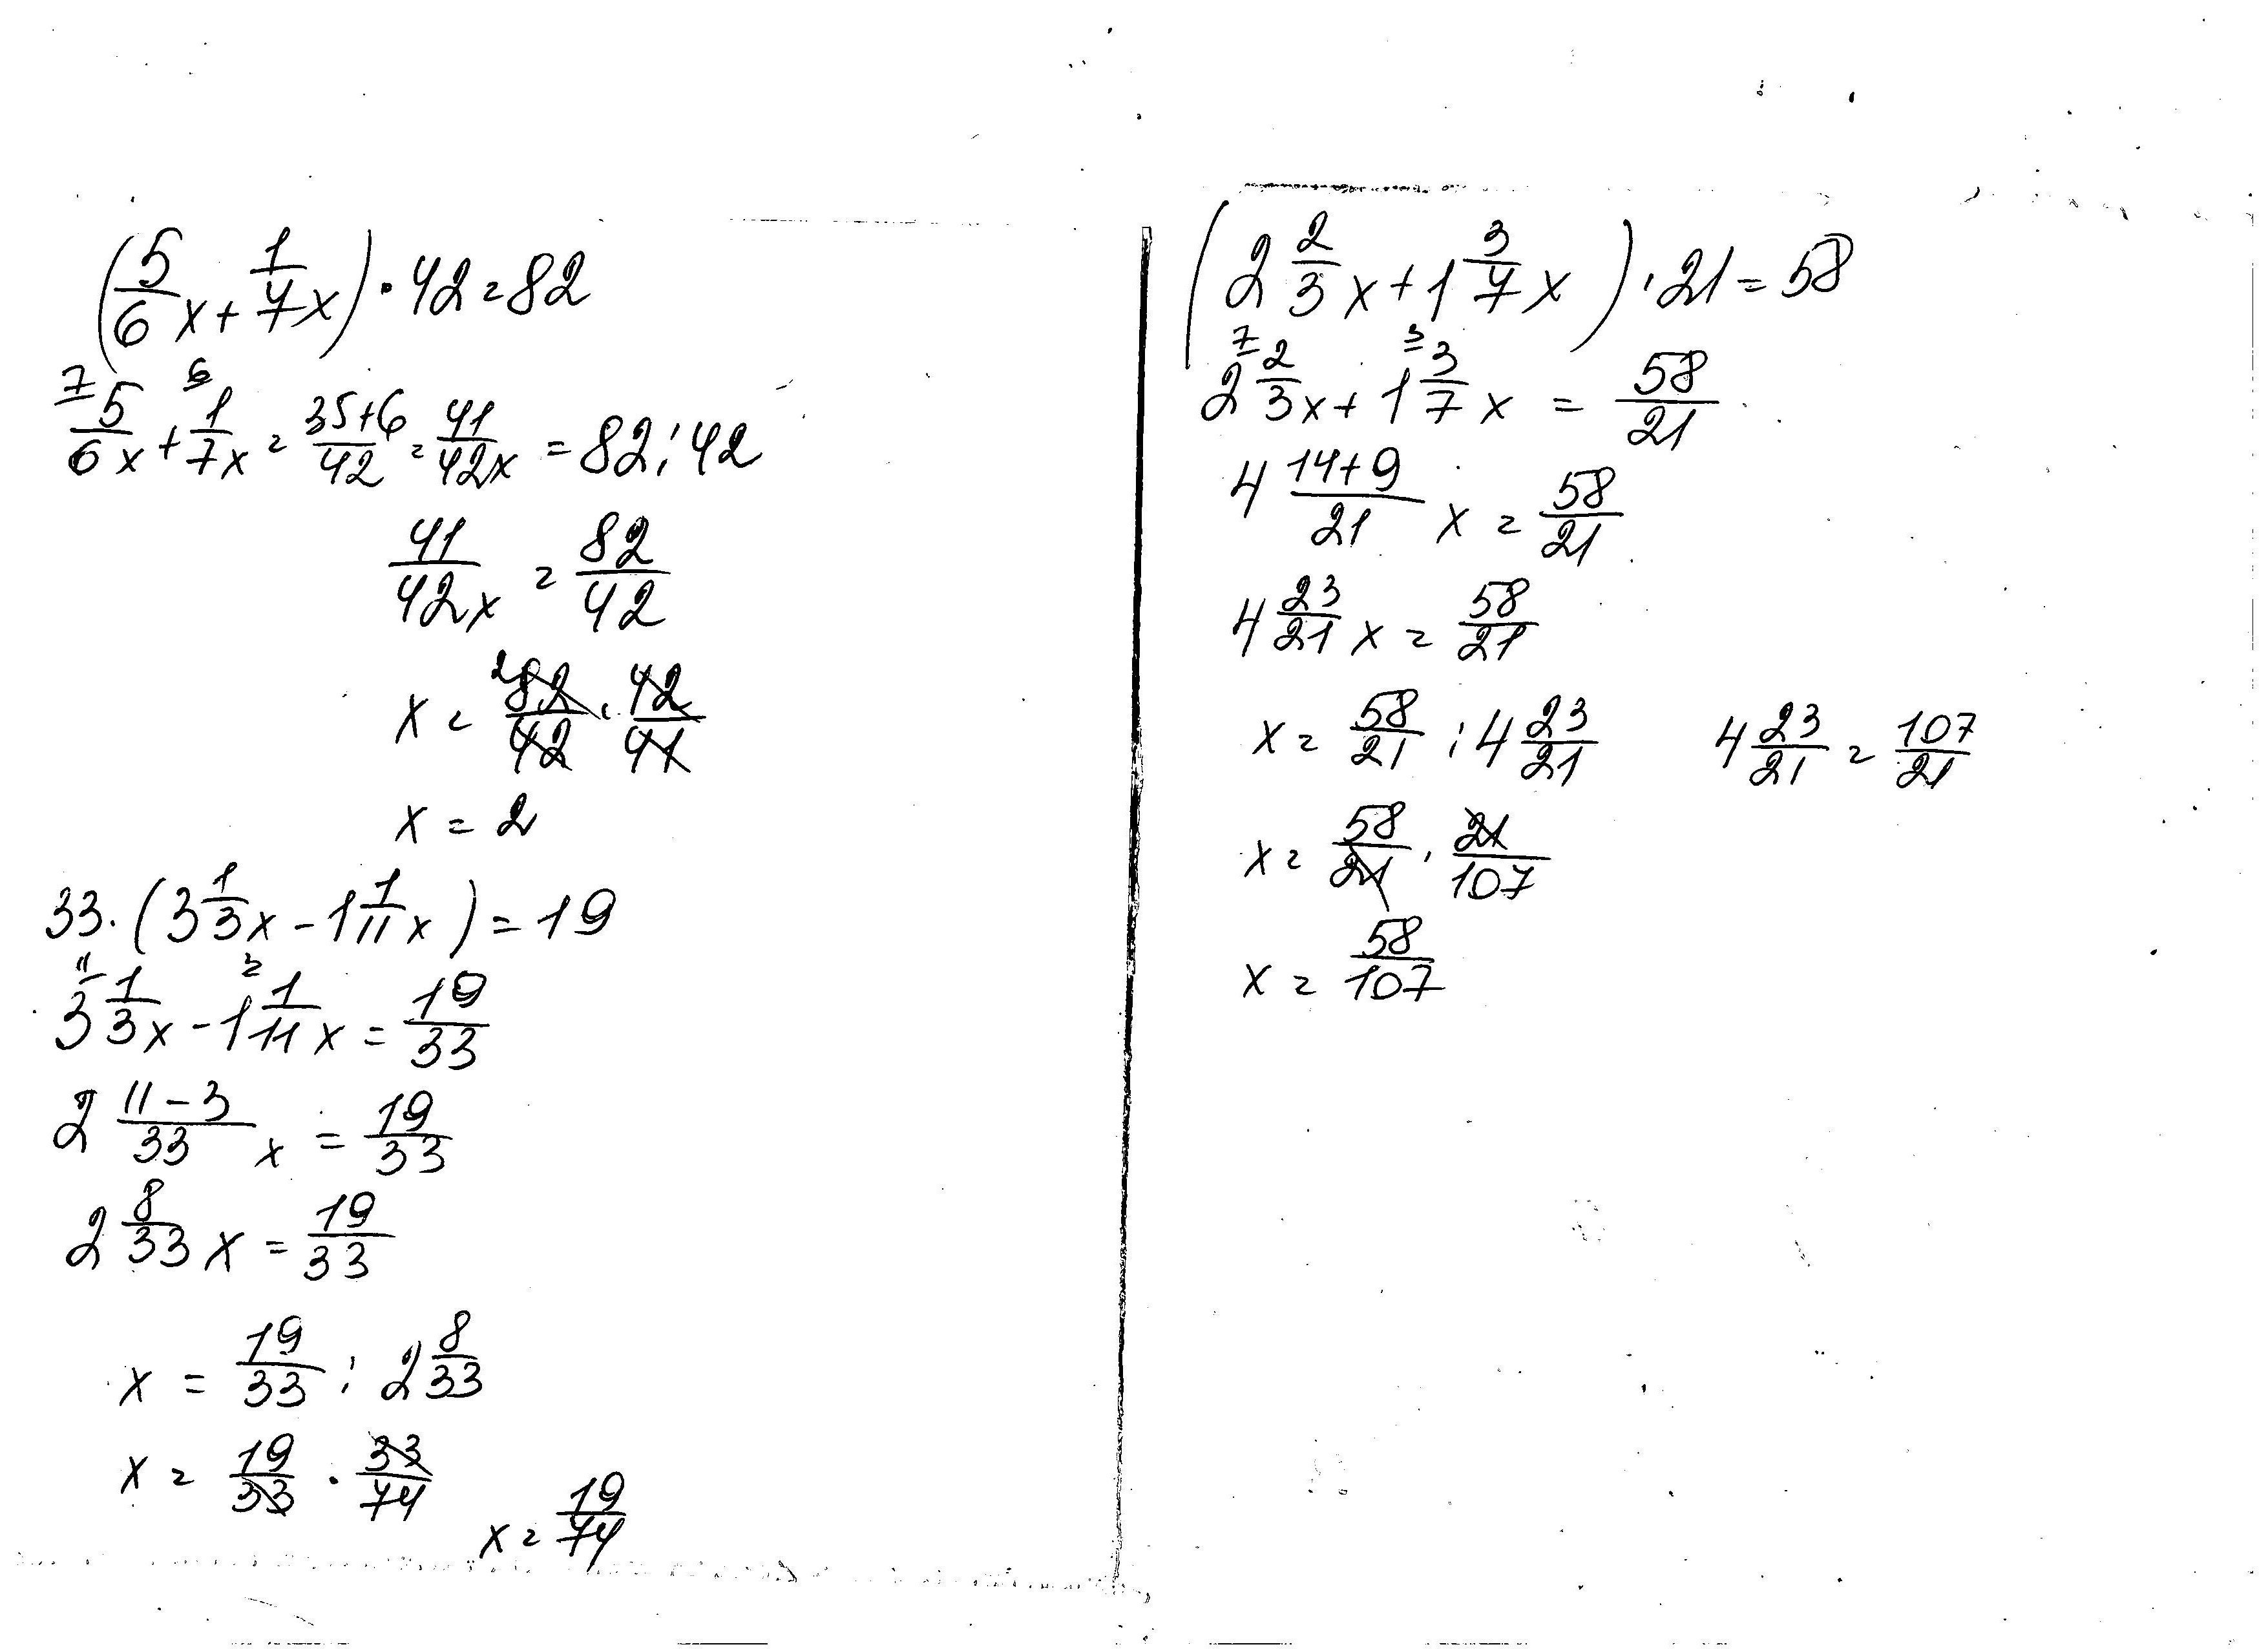 (5/6 x + 1/7 x) · 42 = 82
7 6
5/6 x + 1/7 x = 35+6/42 = 41/42 x = 82 : 42
41/42 x = 82/42
x = 2 82/42 · 42/41
x = 2
33 · (3 1/3 x - 1 1/11 x) = 19
11 3
3 1/3 x - 1 1/11 x = 19/33
2 11-3/33 x = 19/33
2 8/33 x = 19/33
x = 19/33 : 2 8/33
x = 19/33 · 33/74
x = 19/74
(2 2/3 x + 1 3/7 x) · 21 = 58
7 3
2 2/3 x + 1 3/7 x = 58/21
4 14+9/21 x = 58/21
4 23/21 x = 58/21
x = 58/21 : 4 23/21 4 23/21 = 107/21
x = 58/21 · 21/107
x = 58/107